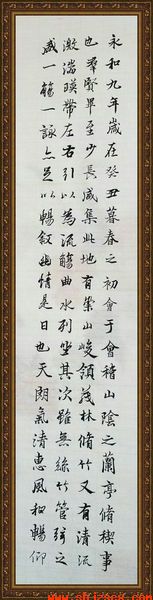 永和九年歲在癸丑暮春之初會于會稽山陰之蘭亭脩稧事
也羣賢畢至少長咸集此地有崇山峻領茂林脩竹又有清流
激湍暎帶左右引以為流觴曲水列坐其次雖無絲竹管弦之
盛一觴一詠亦足以暢敘幽情是日也天朗氣清惠風和暢仰